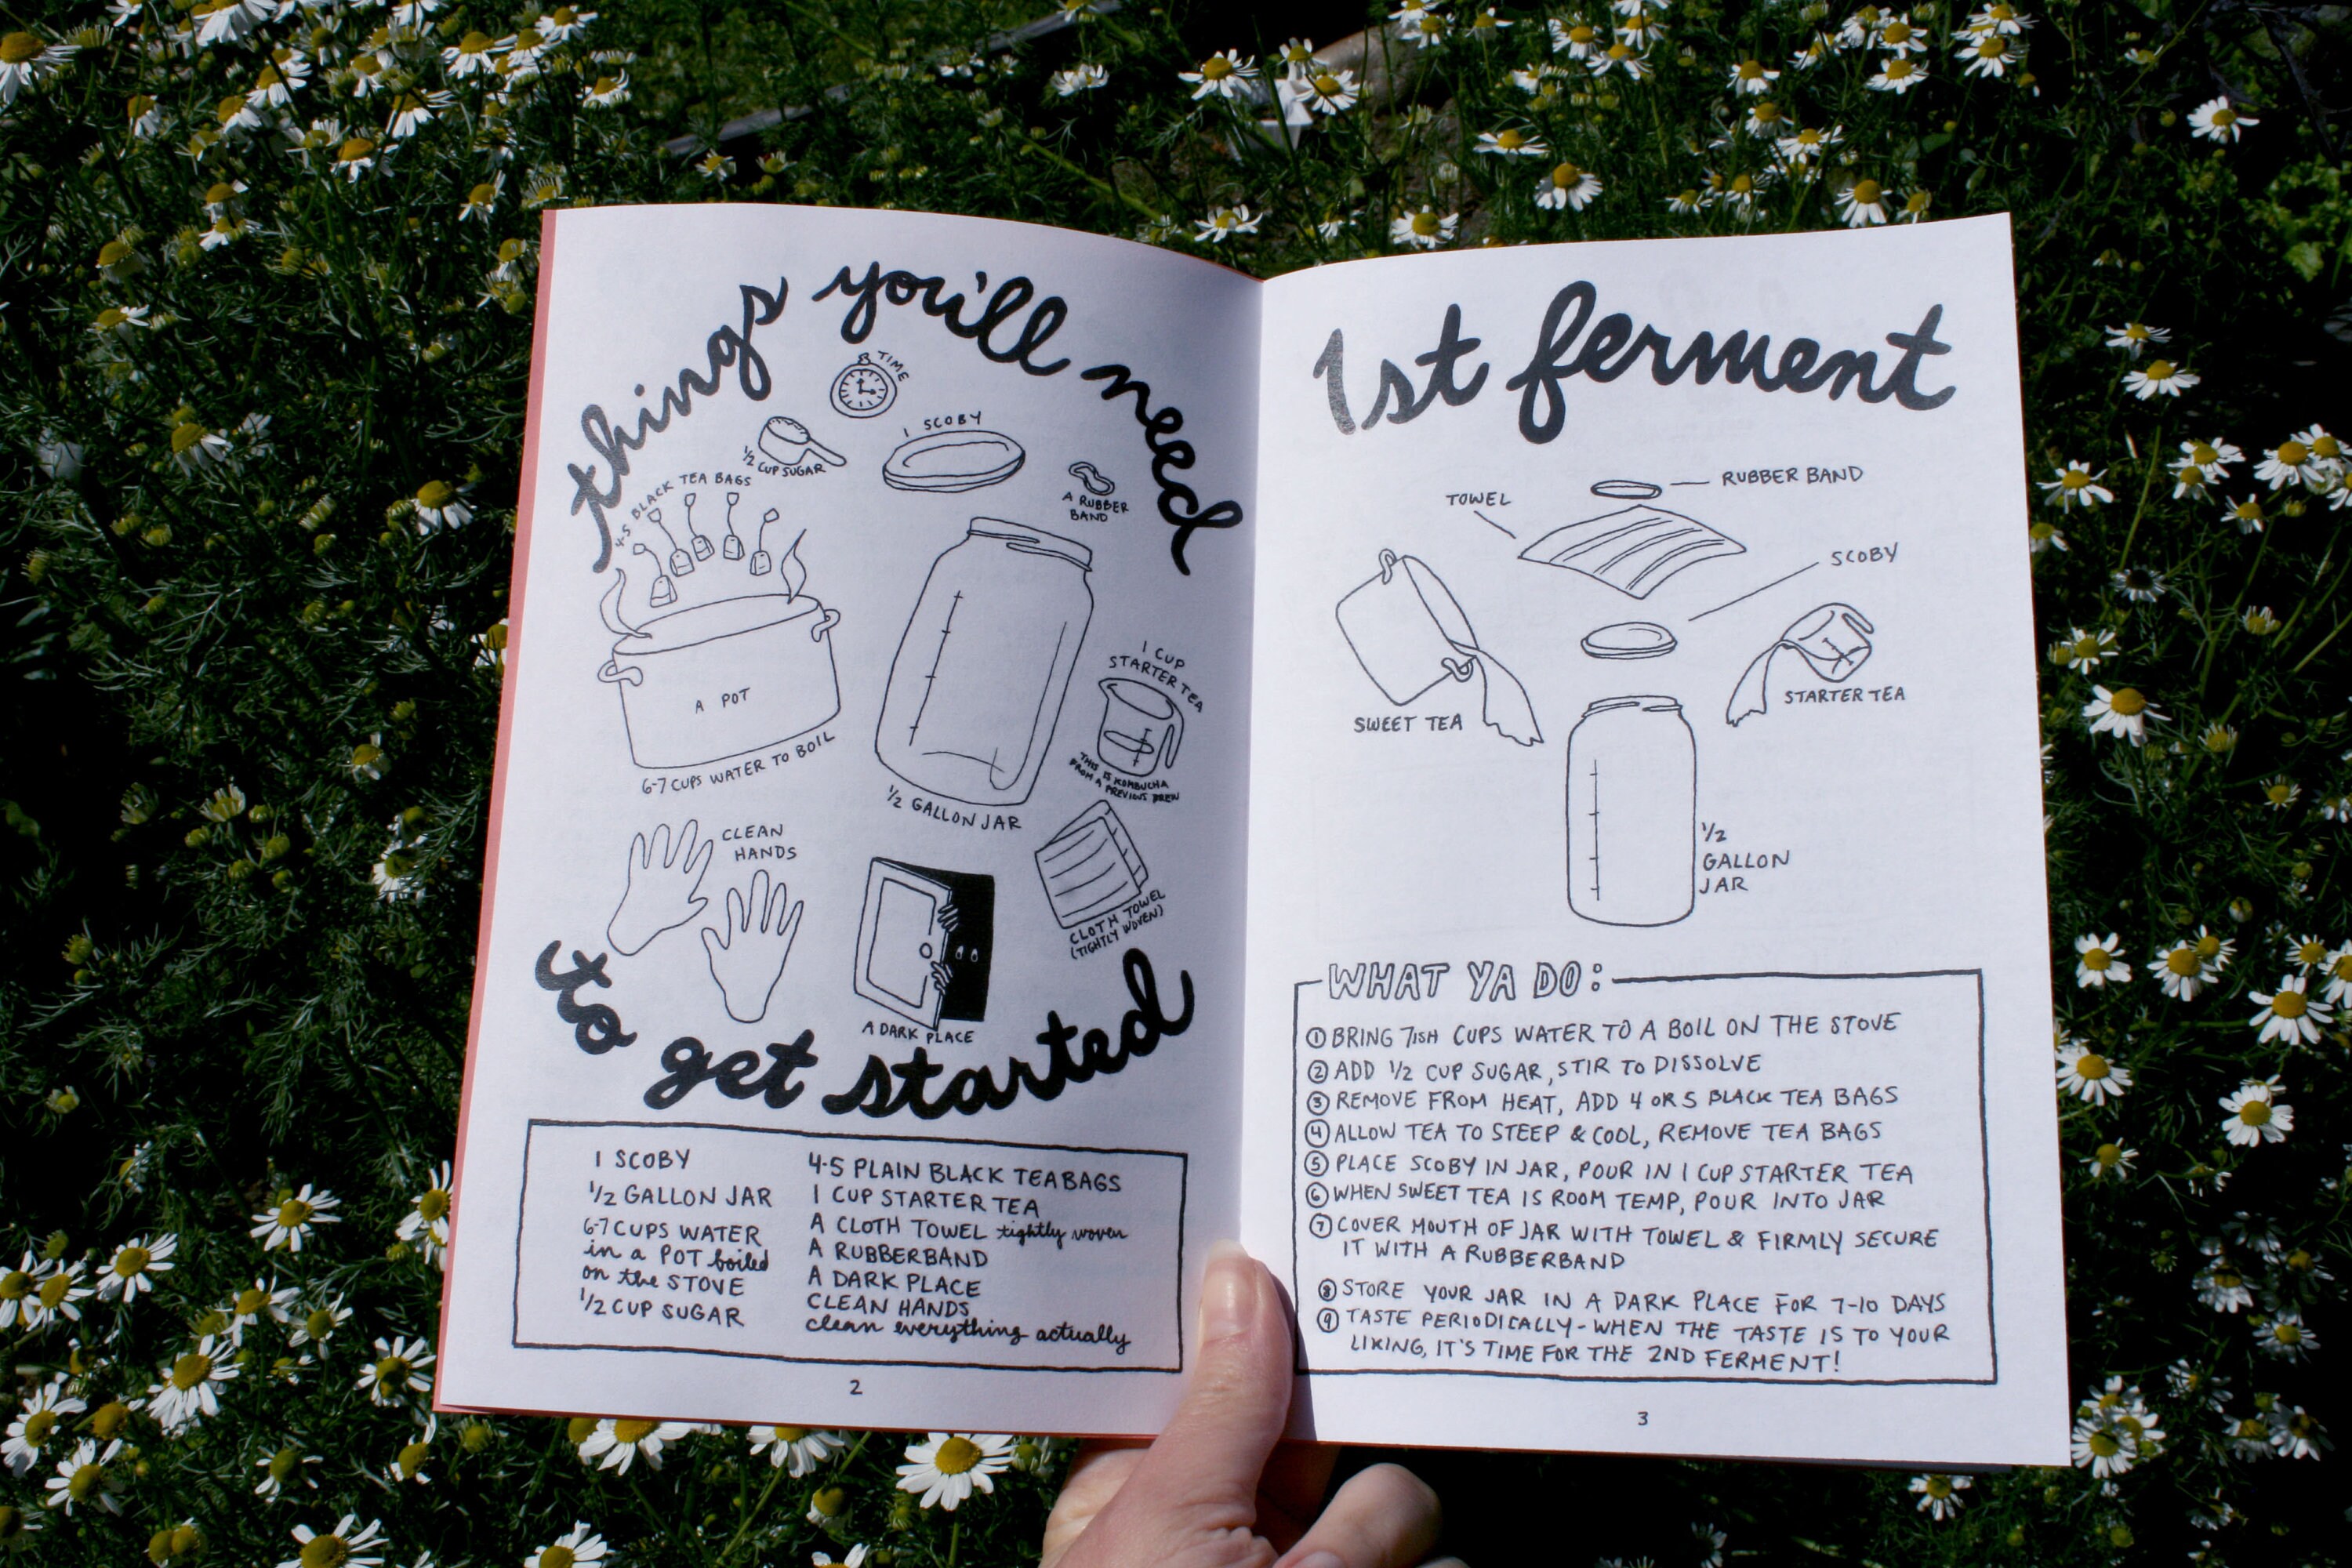 things you'll need
TIME
1 SCOBY
1/2 CUP SUGAR
A RUBBER
BAND
4-5 BLACK TEA BAGS
A POT
6-7 CUPS WATER TO BOIL
1/2 GALLON JAR
1 CUP
STARTER TEA
THIS IS KOMBUCHA
FROM A PREVIOUS BREW
CLEAN
HANDS
A DARK PLACE
CLOTH TOWEL
(TIGHTLY WOVEN)
to get started
1 SCOBY
1/2 GALLON JAR
6-7 CUPS WATER
in a POT boiled
on the STOVE
1/2 CUP SUGAR
4-5 PLAIN BLACK TEABAGS
1 CUP STARTER TEA
A CLOTH TOWEL tightly woven
A RUBBERBAND
A DARK PLACE
CLEAN HANDS
clean everything actually
2
1st ferment
RUBBER BAND
TOWEL
SCOBY
SWEET TEA
STARTER TEA
1/2
GALLON
JAR
WHAT YA DO:
① BRING 7ISH CUPS WATER TO A BOIL ON THE STOVE
② ADD 1/2 CUP SUGAR, STIR TO DISSOLVE
③ REMOVE FROM HEAT, ADD 4 OR 5 BLACK TEA BAGS
④ ALLOW TEA TO STEEP & COOL, REMOVE TEA BAGS
⑤ PLACE SCOBY IN JAR, POUR IN 1 CUP STARTER TEA
⑥ WHEN SWEET TEA IS ROOM TEMP, POUR INTO JAR
⑦ COVER MOUTH OF JAR WITH TOWEL & FIRMLY SECURE
IT WITH A RUBBERBAND
⑧ STORE YOUR JAR IN A DARK PLACE FOR 7-10 DAYS
⑨ TASTE PERIODICALLY - WHEN THE TASTE IS TO YOUR
LIKING, IT'S TIME FOR THE 2ND FERMENT!
3